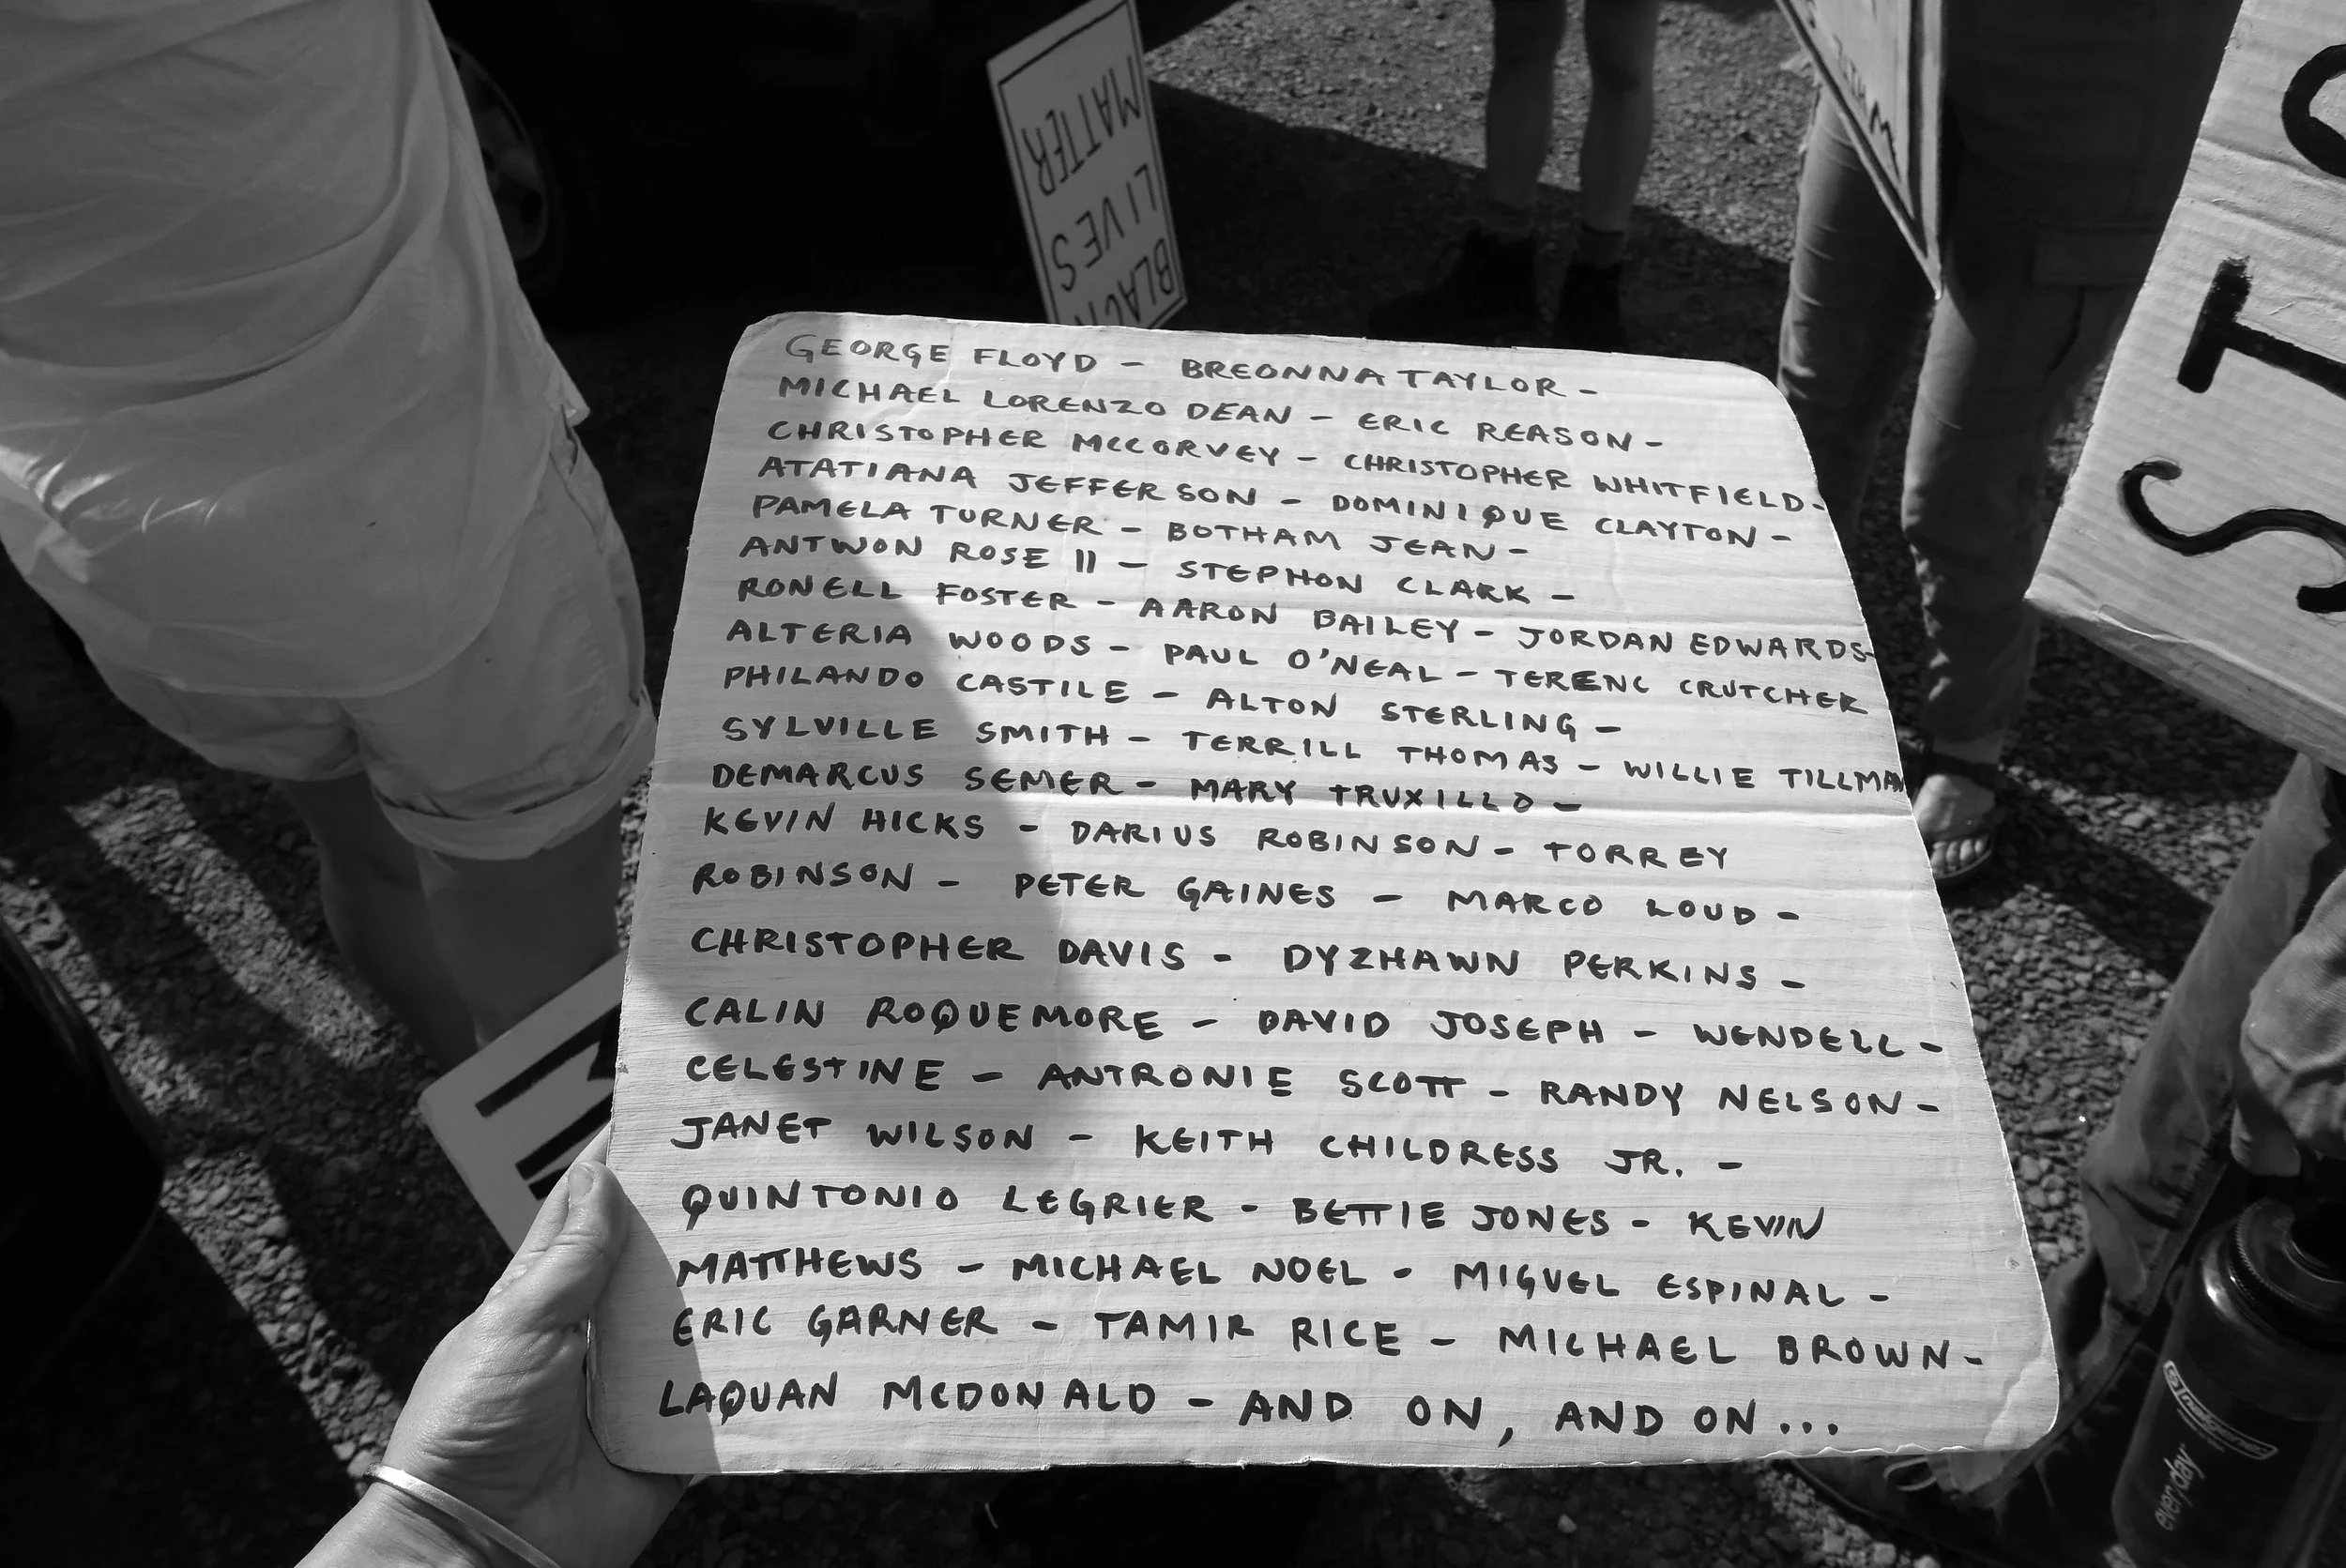 GEORGE FLOYD - BREONNA TAYLOR -
MICHAEL LORENZO DEAN - ERIC REASON -
CHRISTOPHER MCCORVEY - CHRISTOPHER WHITFIELD -
ATATIANA JEFFERSON - DOMINIQUE CLAYTON -
PAMELA TURNER - BOTHAM JEAN -
ANTWON ROSE II - STEPHON CLARK -
RONELL FOSTER - AARON BAILEY - JORDAN EDWARDS -
ALTERIA WOODS - PAUL O'NEAL - TERENC CRUTCHER
PHILANDO CASTILE - ALTON STERLING -
SYLVILLE SMITH - TERRILL THOMAS - WILLIE TILLMAN
DEMARCUS SEMER - MARY TRUXILLO -
KEVIN HICKS - DARIUS ROBINSON - TORREY
ROBINSON - PETER GAINES - MARCO LOUD -
CHRISTOPHER DAVIS - DYZHAWN PERKINS -
CALIN ROQUEMORE - DAVID JOSEPH - WENDELL -
CELESTINE - ANTRONIE SCOTT - RANDY NELSON -
JANET WILSON - KEITH CHILDRESS JR. -
QUINTONIO LEGRIER - BETTIE JONES - KEVIN
MATTHEWS - MICHAEL NOEL - MIGUEL ESPINAL -
ERIC GARNER - TAMIR RICE - MICHAEL BROWN -
LAQUAN MCDONALD - AND ON, AND ON...
BLACK
LIVES
MATTER
ST
M
everyday